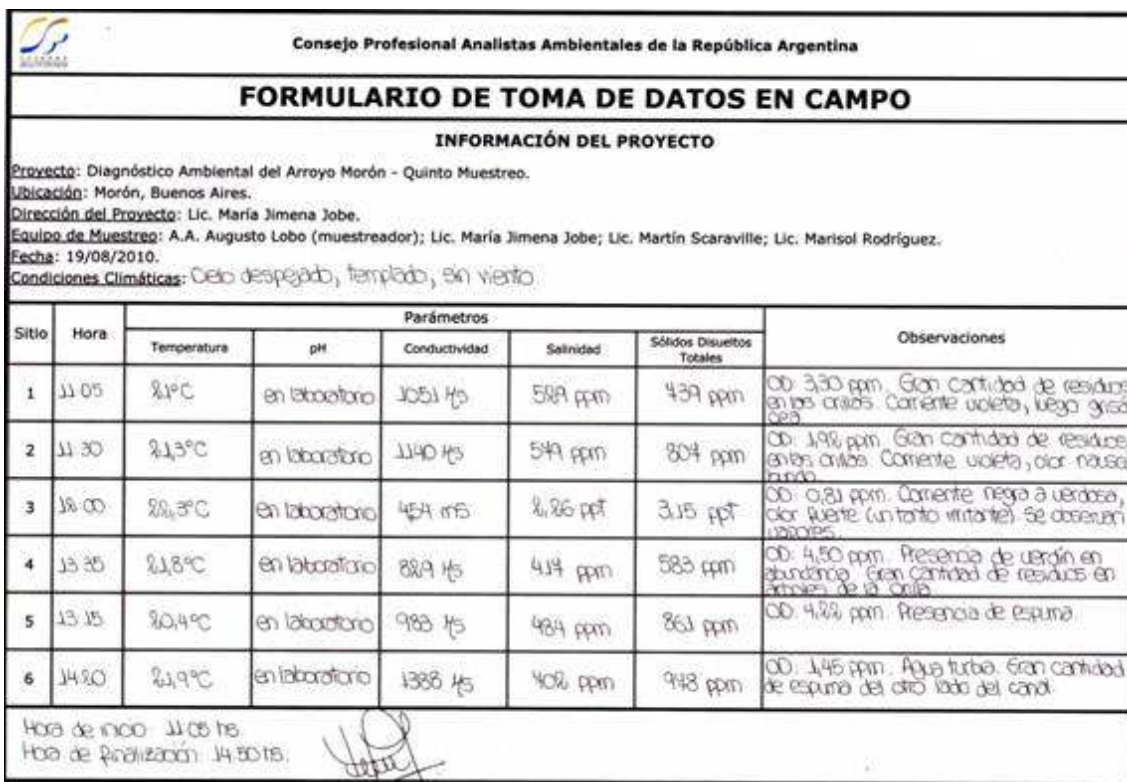 Consejo Profesional Analistas Ambientales de la República Argentina
FORMULARIO DE TOMA DE DATOS EN CAMPO
INFORMACIÓN DEL PROYECTO
Proyecto: Diagnóstico Ambiental del Arroyo Morón - Quinto Muestreo.
Ubicación: Morón, Buenos Aires.
Dirección del Proyecto: Lic. María Jimena Jobe.
Equipo de Muestreo: A.A. Augusto Lobo (muestreador); Lic. María Jimena Jobe; Lic. Martín Scaraville; Lic. Marisol Rodríguez.
Fecha: 19/08/2010.
Condiciones Climáticas: Cielo despejado, templado, sin viento
Sitio Hora Parámetros Observaciones
Temperatura pH Conductividad Salinidad Sólidos Disueltos
Totales
1 11 05 21°C en laboratorio 1051 µs 529 ppm 739 ppm OD: 3,30 ppm. Gran cantidad de residuos
en las orillas. Corriente violeta, luego grisá
cea
2 11 30 21,3°C en laboratorio 1140 µs 549 ppm 807 ppm OD: 1,92 ppm. Gran cantidad de residuos
en las orillas. Corriente violeta, olor nausea
bundo.
3 12 00 22,3°C en laboratorio 454 mS 2,26 ppt 3,15 ppt OD: 0,81 ppm. Corriente negra a verdosa,
olor fuerte (un tanto irritante). Se observan
vapores.
4 13 35 21,8°C en laboratorio 829 µs 414 ppm 583 ppm OD: 4,50 ppm. Presencia de verdín en
abundancia. Gran cantidad de residuos en
árboles de la orilla
5 13 15 20,4°C en laboratorio 983 µs 484 ppm 861 ppm OD: 4,22 ppm. Presencia de espuma
6 14 20 21,9°C en laboratorio 1388 µs 402 ppm 948 ppm OD: 1,45 ppm. Agua turbia. Gran cantidad
de espuma del otro lado del canal.
Hora de inicio: 11 05 hs
Hora de finalización: 14.50 hs.